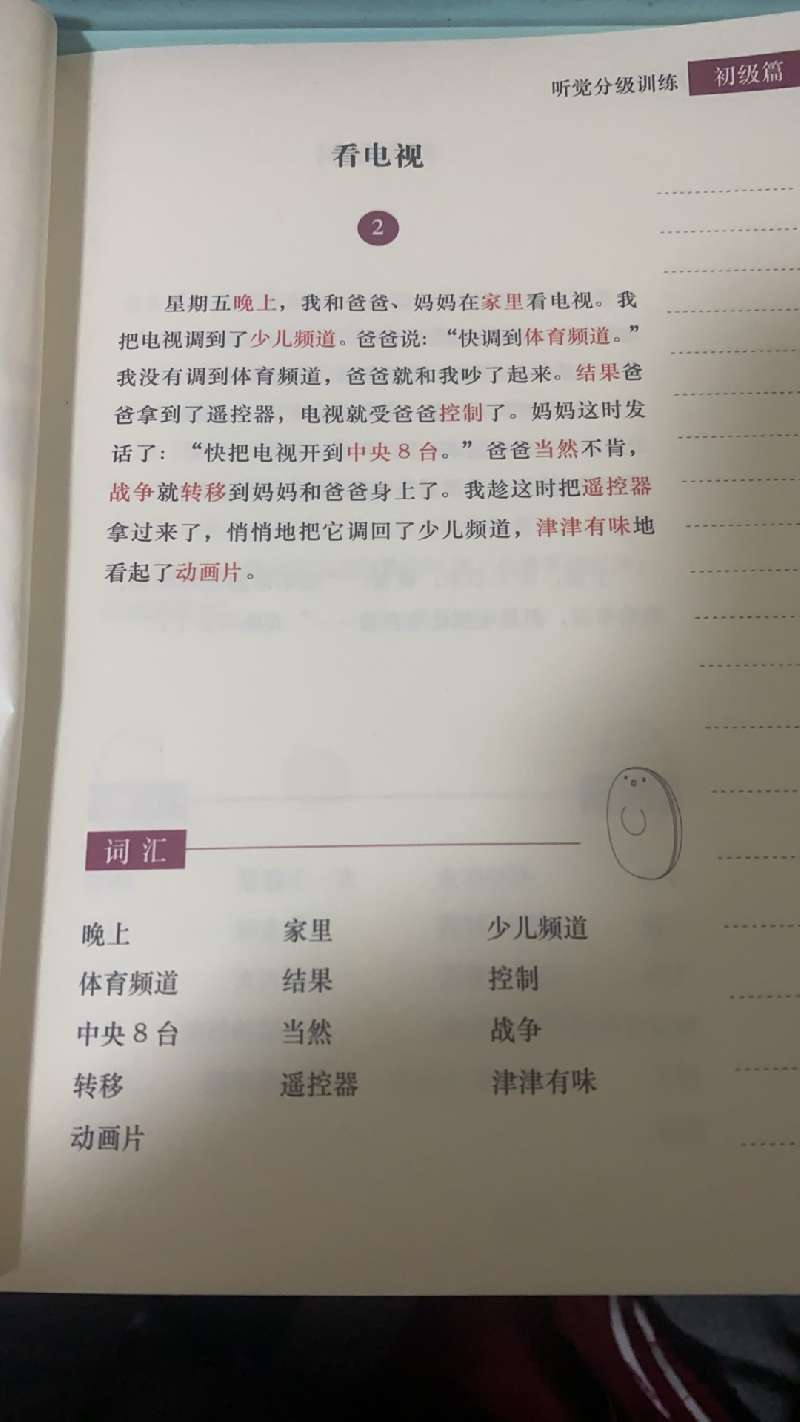 听觉分级训练 初级篇
看电视
2
星期五晚上，我和爸爸、妈妈在家里看电视。我
把电视调到了少儿频道。爸爸说：“快调到体育频道。”
我没有调到体育频道，爸爸就和我吵了起来。结果爸
爸拿到了遥控器，电视就受爸爸控制了。妈妈这时发
话了：“快把电视开到中央8台。”爸爸当然不肯，
战争就转移到妈妈和爸爸身上了。我趁这时把遥控器
拿过来了，悄悄地把它调回了少儿频道，津津有味地
看起了动画片。
词汇
晚上 家里 少儿频道
体育频道 结果 控制
中央8台 当然 战争
转移 遥控器 津津有味
动画片